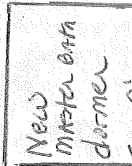 New
MASTER BATH
dormer